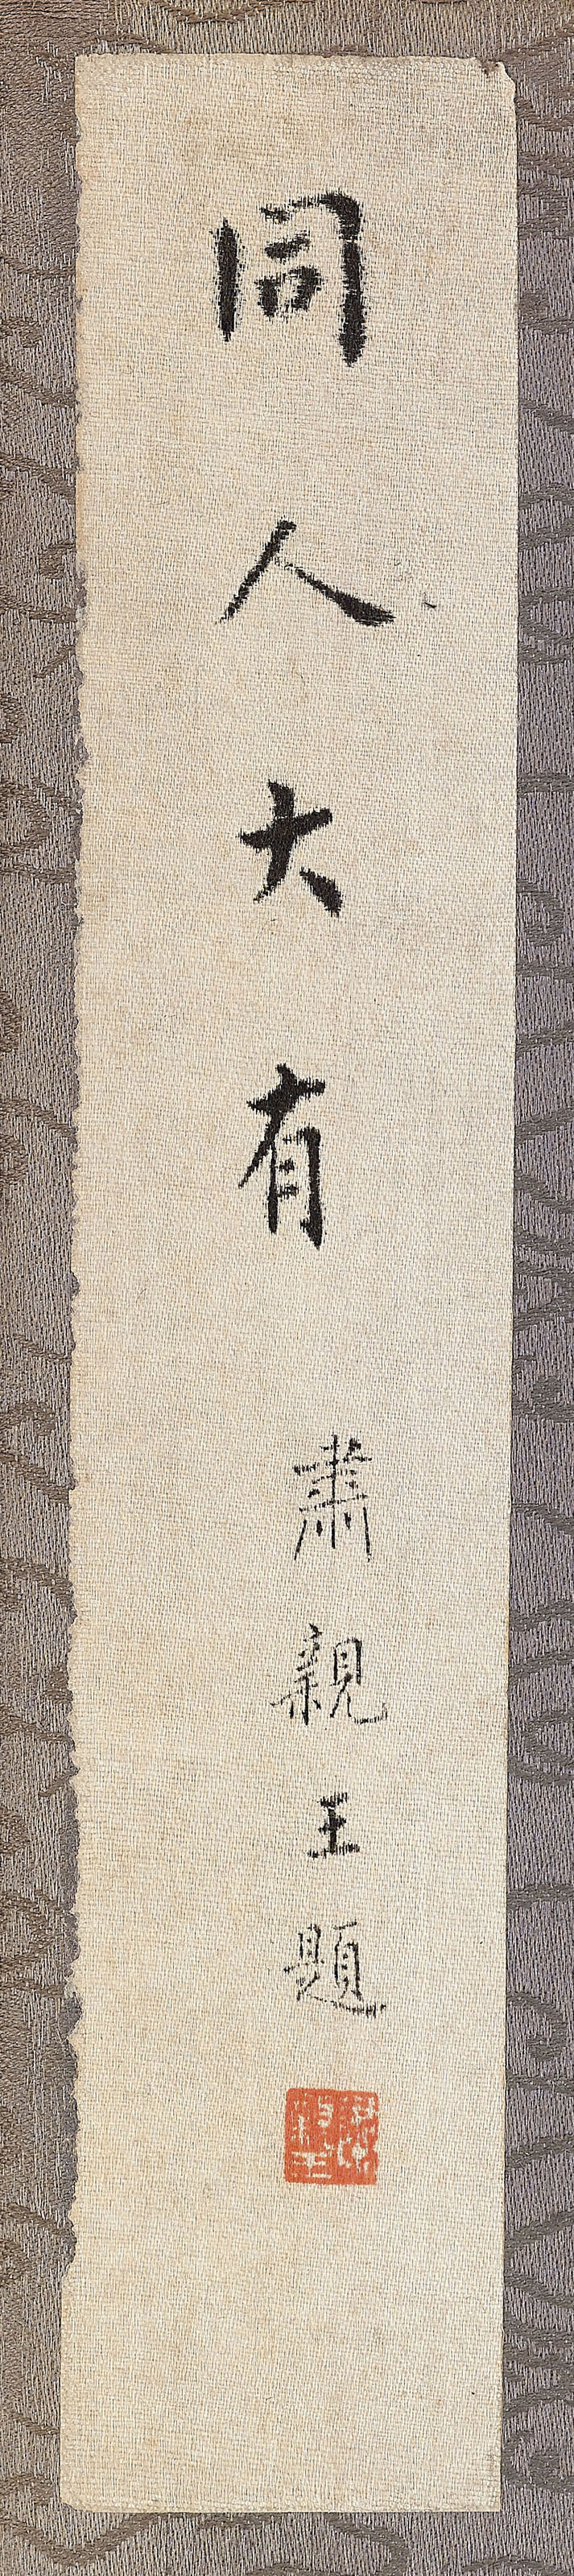 同人大有
肅親王題